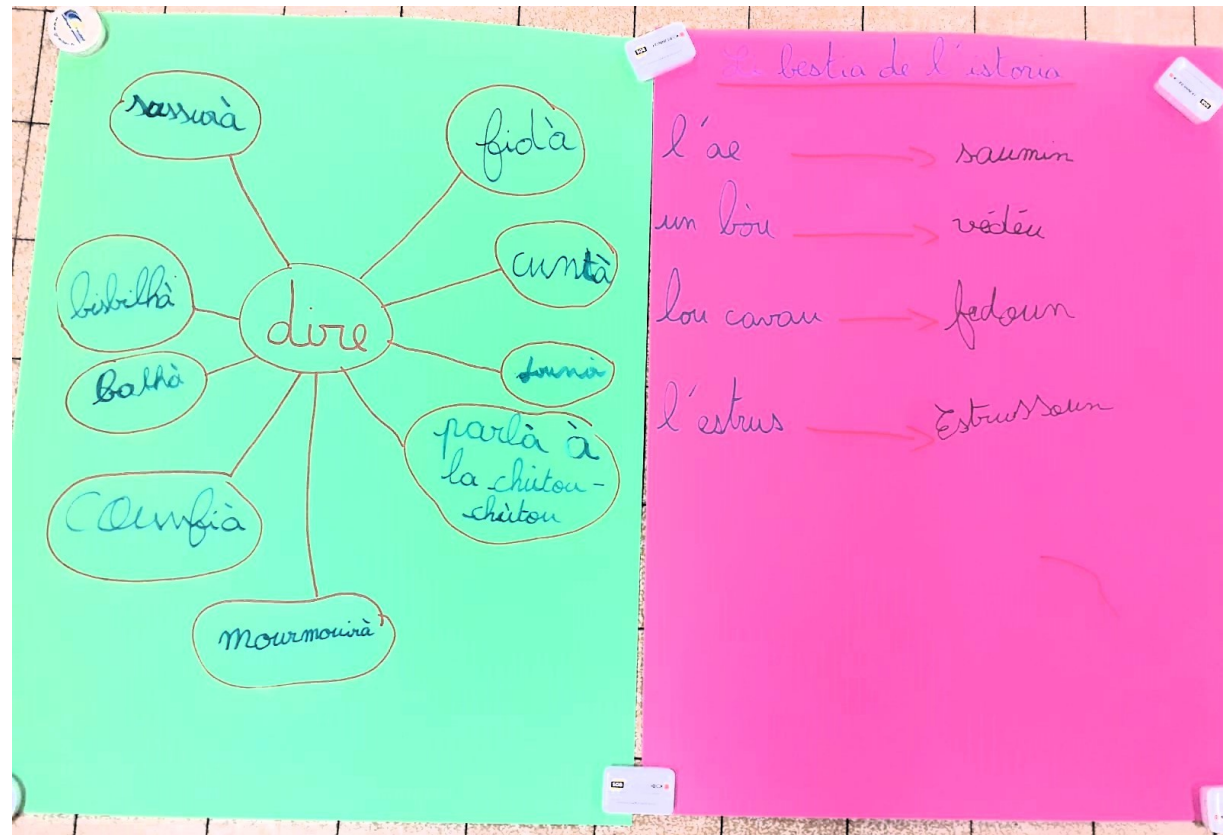 sassurà
fidà
cuntà
bisbilhà
dire
Balhà
parlà à
la chùtou-
chùtou
counfià
mourmourà
bestia de l'istoria
l'ae → saumin
un bòu → védéu
lou cavau → fedoun
l'estrus → Estrussoun